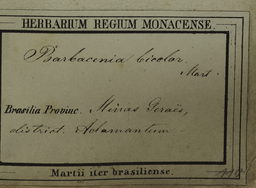 HERBARIUM REGIUM MONACENSE.
Barbacenia bicolor.
Mart.
Brasilia Provinc. Minas Geraës,
district. Adamantium
Martii iter brasiliense.